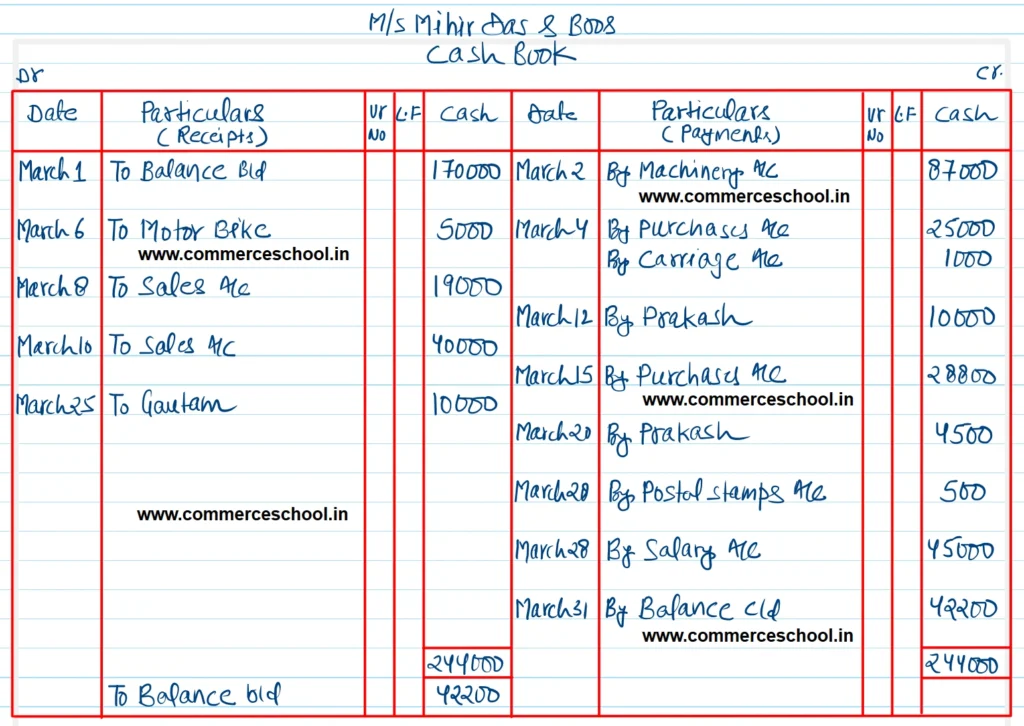 M/s Mihir Das & Boos
Cash Book
Dr Cr.
Date Particulars (Receipts) Vr No L.F Cash Date Particulars (Payments) Vr No L.F Cash
March 1 To Balance b/d 170000 March 2 By Machinery A/c 87000
www.commerceschool.in
March 6 To Motor Bike 5000 March 4 By Purchases A/c 25000
www.commerceschool.in By Carriage A/c 1000
March 8 To Sales A/c 19000
March 12 By Prakash 10000
March 10 To Sales A/C 40000
March 15 By Purchases A/c 28800
March 25 To Gautam 10000 www.commerceschool.in
March 20 By Prakash 4500
March 20 By Postal stamps A/c 500
www.commerceschool.in
March 28 By Salary A/c 45000
March 31 By Balance c/d 42200
www.commerceschool.in
244000 244000
To Balance b/d 42200